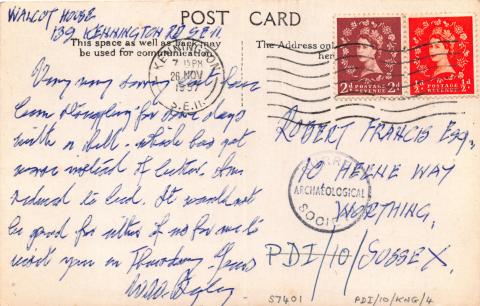 WALCOT HOUSE
139 KENNINGTON RD SE 11
POST CARD
This space as well as back may
be used for communication.
The Address onl
her
KENNINGTON
7 15PM
26 NOV
1957
S.E.11.
2d POSTAGE REVENUE 2d
½d POSTAGE REVENUE ½d
Very very sorry but have
been struggling for some days
with a chill - which has got
worse instead of better. Am
reduced to bed. It would not
be good for either of us for me to
visit you on Thursday. Yours
ROBERT FRANCIS ESQ.,
10 HEENE WAY
WORTHING,
SUSSEX.
ARCHAEOLOGICAL
SOCIETY
PDI/10/
57401
PDI/10/KNG/4